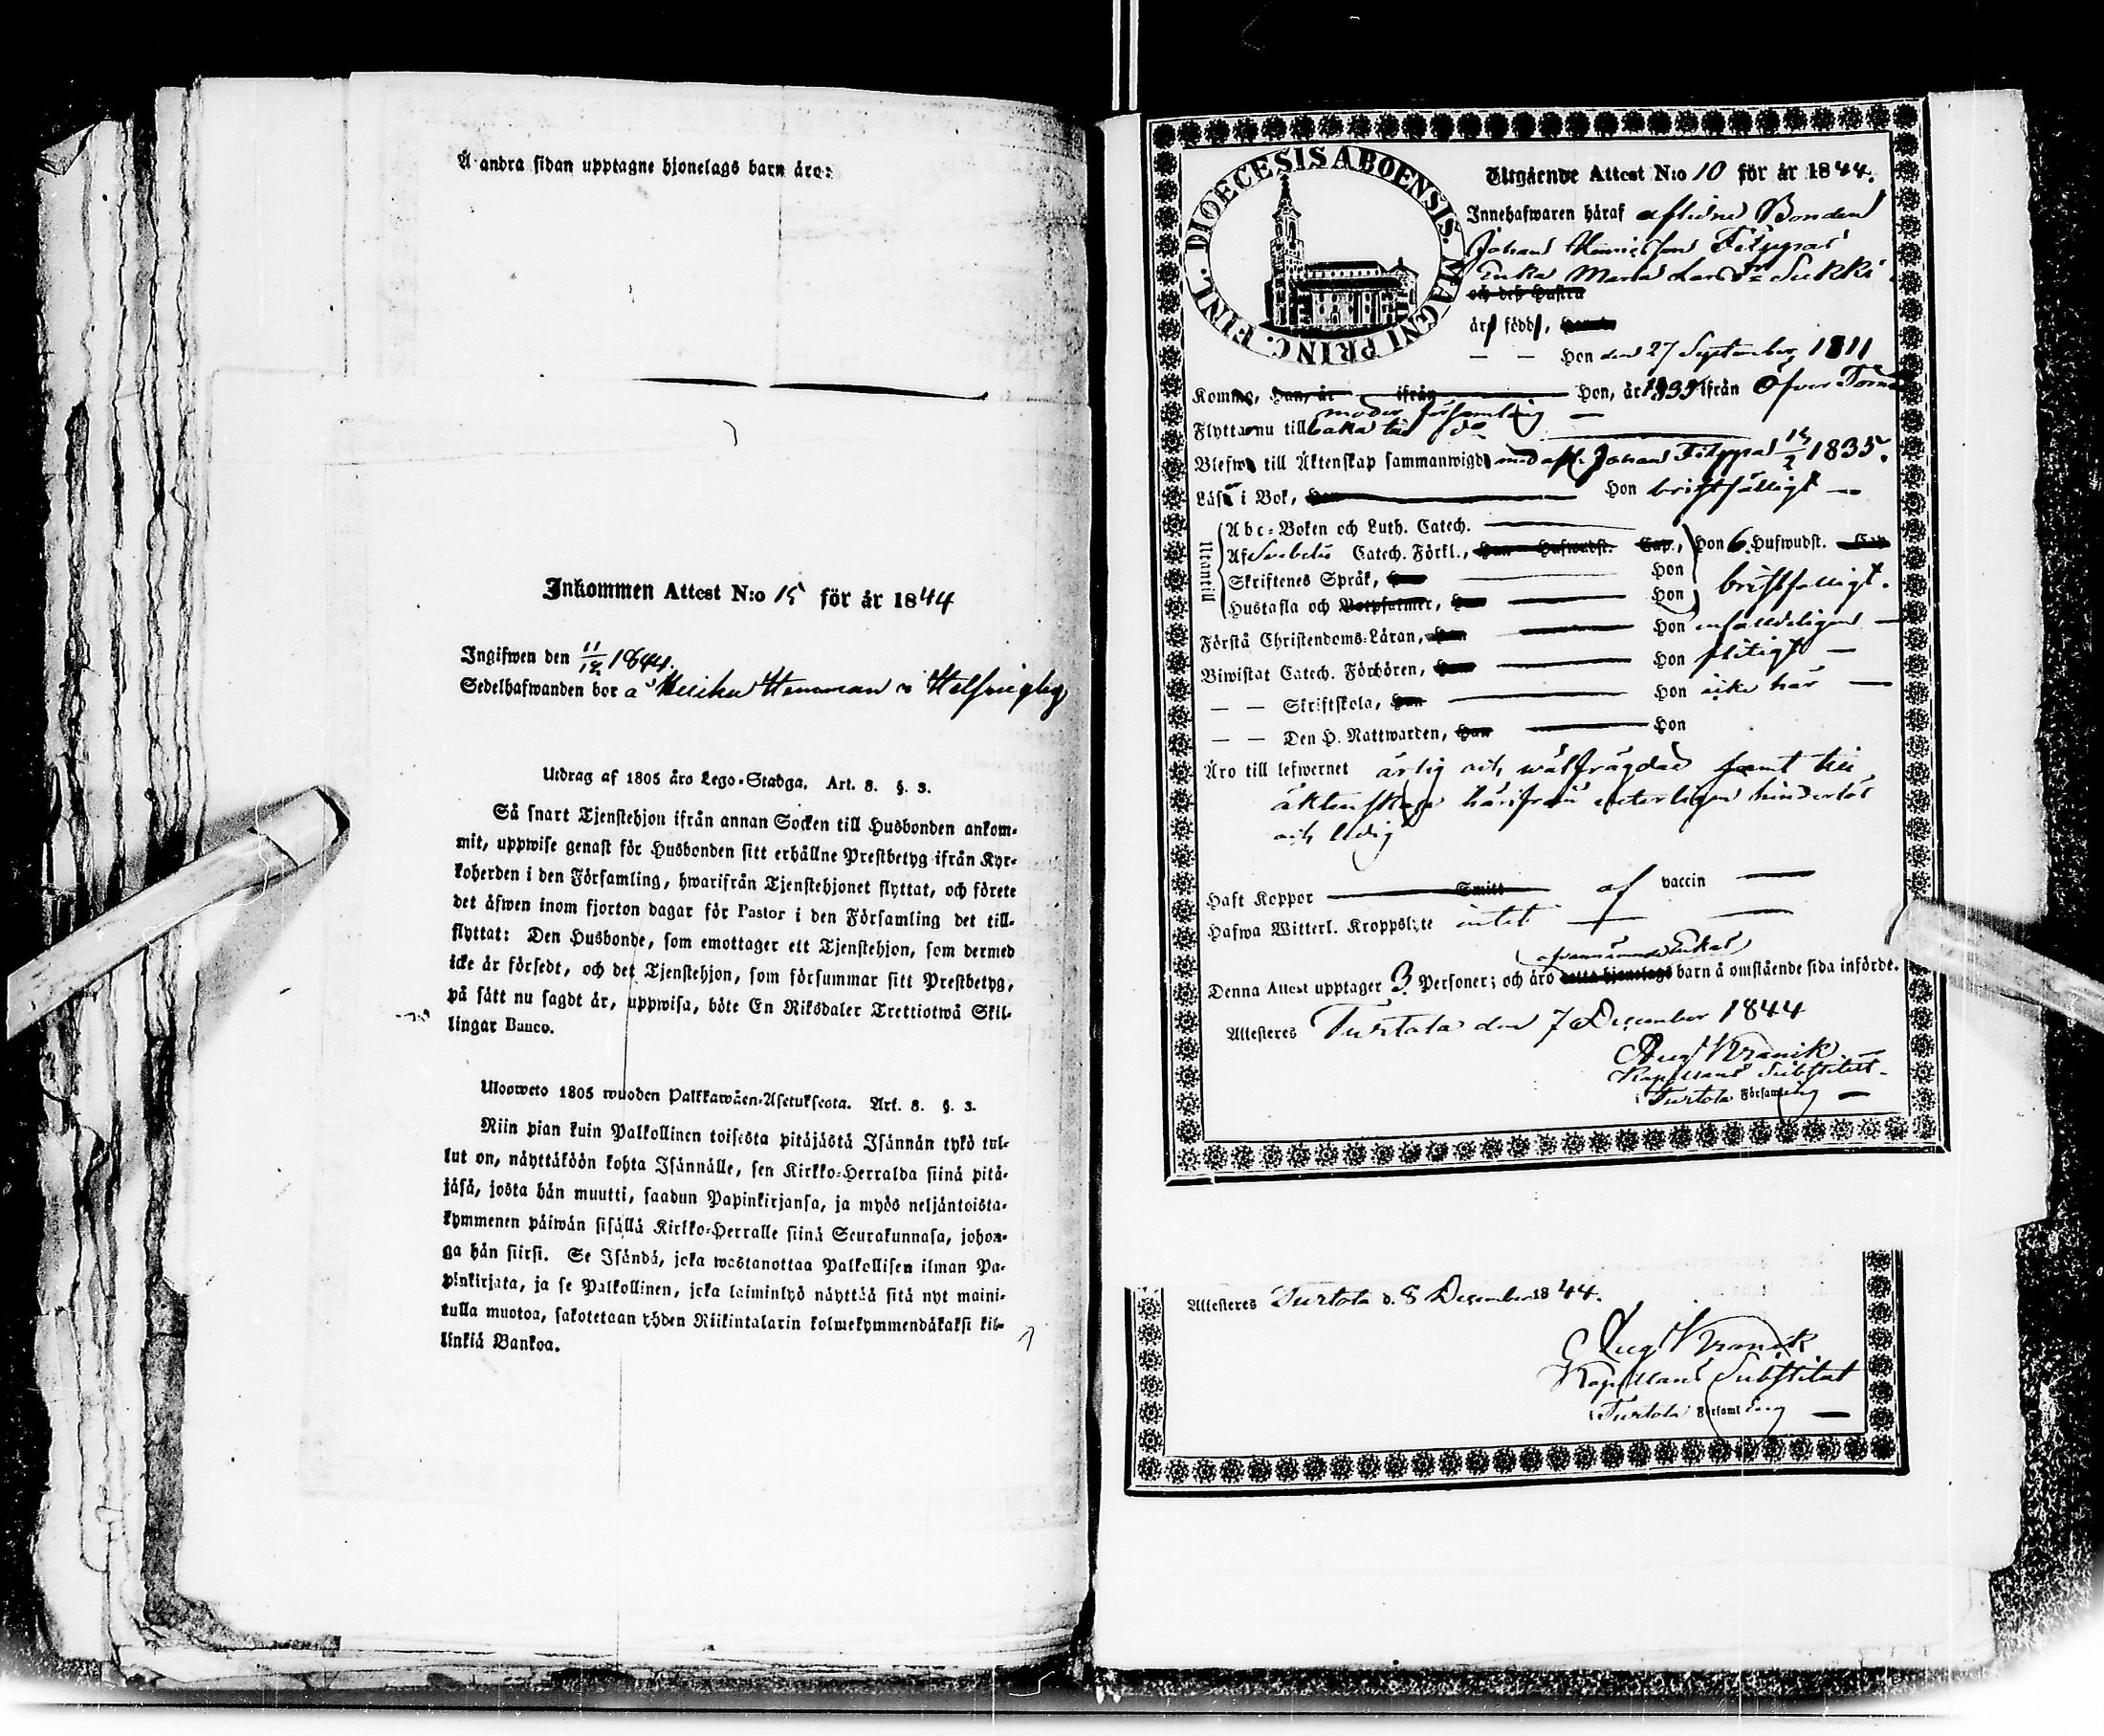 Å andra sidan upptagne hjonelags barn äro:
Inkommen Attest N:o 15 för år 1844
Ingifwen den 11/12 1844.
Sedelhafwanden bor å Heiska Hemman i Helsingby
Utdrag af 1805 åro Lego-Stadga. Art. 8. §. 3.
Så snart Tjenstehjon ifrån annan Socken till Husbonden ankom-
mit, uppwise genast för Husbonden sitt erhållne Prestbetyg ifrån Kyr-
koherden i den Församling, hwarifrån Tjenstehjonet flyttat, och förete
det äfwen inom fjorton dagar för Pastor i den Församling det till-
flyttat: Den Husbonde, som emottager ett Tjenstehjon, som dermed
icke är försedt, och det Tjenstehjon, som försummar sitt Prestbetyg,
på sätt nu sagdt är, uppwisa, böte En Riksdaler Trettiotwå Skil-
lingar Banco.
Ulosweto 1805 wuoden Palkkawäen-Asetuksesta. Art. 8. §. 3.
Niin pian kuin Palkollinen toisesta pitäjästä Isännän tykö tul-
lut on, näyttäköön kohta Isännälle, sen Kirkko-Herralda siinä pitä-
jäsä, josta hän muutti, saadun Papinkirjansa, ja myös neljäntoista-
kymmenen päiwän sisällä Kirkko-Herralle siinä Seurakunnasa, johon-
ga hän siirsi. Se Isändä, joka wastanottaa Palkollisen ilman Pa-
pinkirjata, ja se Palkollinen, joka laiminlyö näyttää sitä nyt maini-
tulla muotoa, sakotetaan yhden Riikintalarin kolmekymmendäkaksi kil-
linkiä Bankoa.
DIOECESIS ABOENSIS. MAGNI PRINC. FINL.
Utgående Attest N:o 10 för år 1844.
Innehafwaren häraf aflidne Bonden
Johan Henricsson Filppas
Enka Maria Larsdr Sukki
och deß Hustru
äro född,
— — Hon den 27 September 1811
Komne, Han, år ifrån Hon, år 1835 ifrån Öfver Torneå
moder församling
Flytta nu tillbaka till do
Blefwo till Äktenskap sammanwigde med afl. Johan Filppa 15/2 1835.
Läsa i Bok, Han Hon bristfälligt
Utantill
Abc-Boken och Luth. Catech.
Af Svebelii Catech. Förkl., Han Hufwudst. Cap., Hon 6 Hufwudst. Cap
Skriftenes Språk, Han Hon
Hustafla och Botpsalmer, Han Hon bristfälligt.
Förstå Christendoms-Läran, Han Hon enfaldeligen
Biwistat Catech. Förhören, Han Hon flitigt
— — Skriftskola, Han Hon icke här
— — Den H. Nattwarden, Han Hon
Äro till lefwernet ärlig och wälfrägdad samt till
äktenskap härifrån witterligen hinderlös
och ledig
Haft Koppor Smitt af vaccin
Hafwa Witterl. Kroppslyte intet
ofvannämnde Enkas
Denna Attest upptager 3 Personer; och äro detta hjonelags barn å omstående sida införde.
Attesteres Turtola den 7 December 1844
Aug Kranck
Kapellans Substitut
i Turtola Församling
Attesteres Turtola d. 8 December 1844.
Aug Kranck
Kapellans Substitut
i Turtola Församling